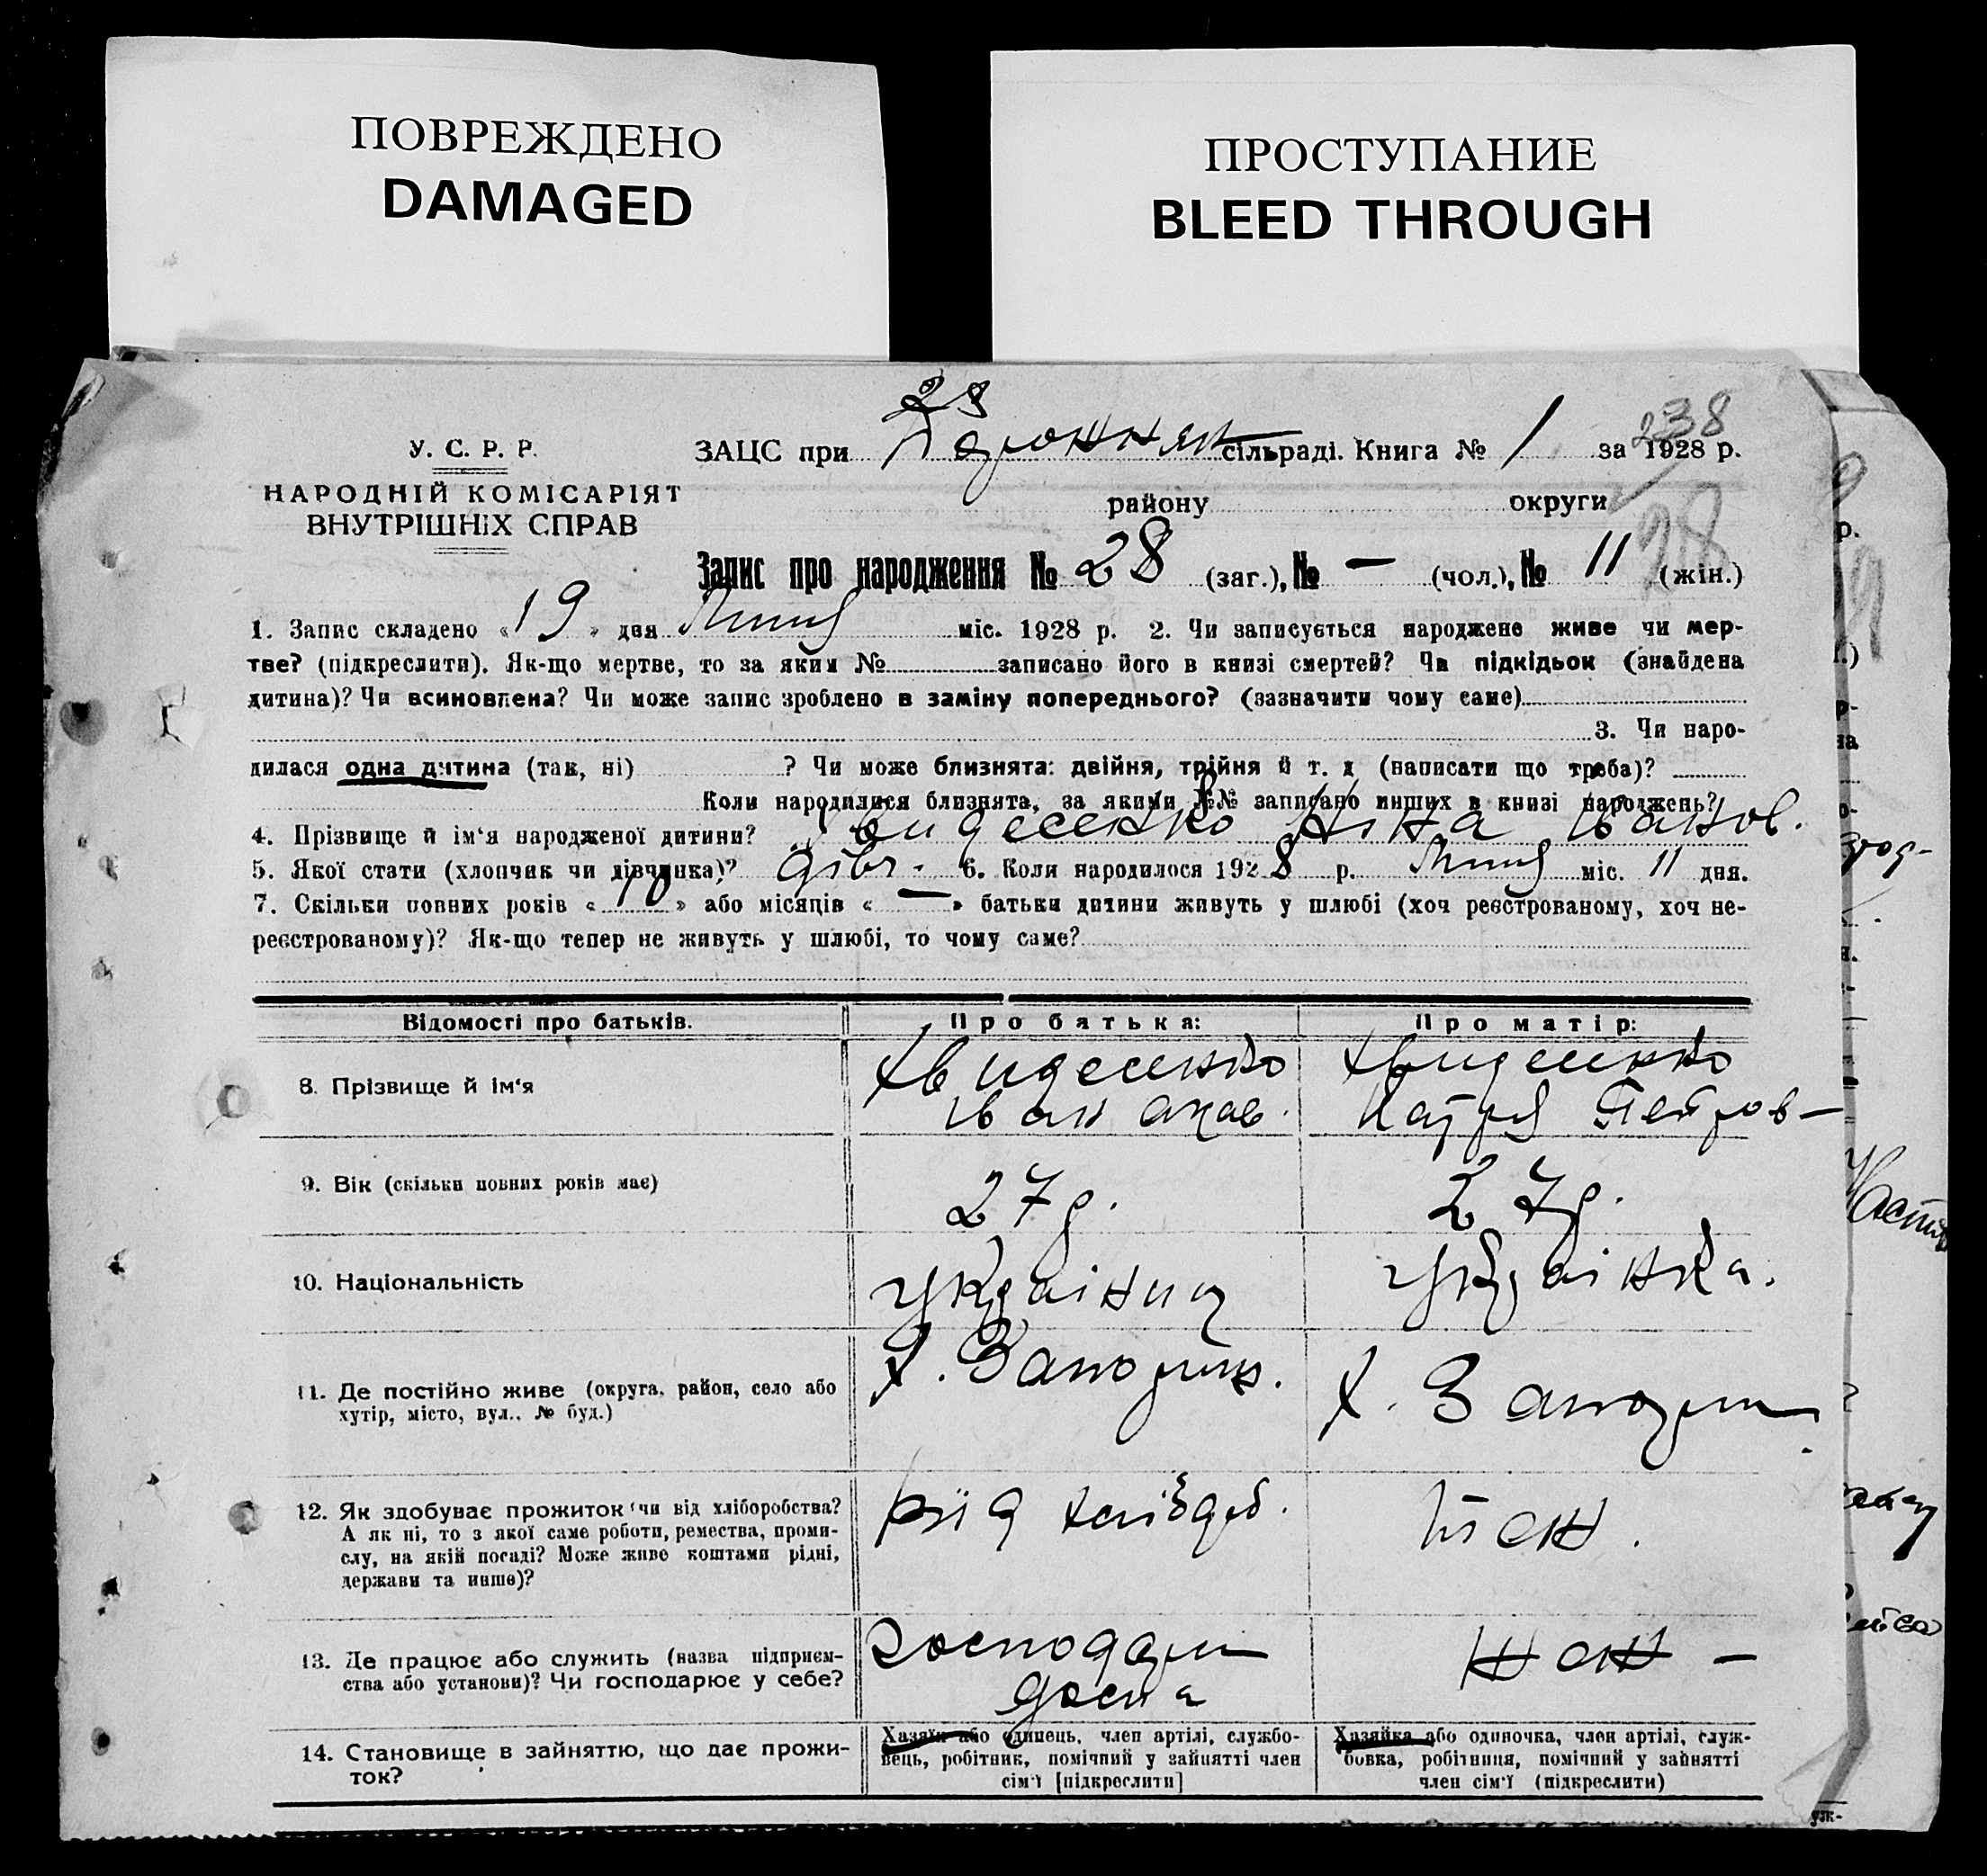 ПОВРЕЖДЕНО
DAMAGED
ПРОСТУПАНИЕ
BLEED THROUGH
238
28
У. С. Р. Р.
НАРОДНІЙ КОМІСАРІЯТ
ВНУТРІШНІХ СПРАВ
ЗАЦС при сільраді. Книга № 1 за 1928 р.
району округи
28
Запис про народження № 28 (заг.), № — (чол.), № 11 (жін.)
1. Запис складено «19» дня Липня міс. 1928 р. 2. Чи записується народжене живе чи мер-
тве? (підкреслити). Як-що мертве, то за яким № записано його в книзі смертей? Чи підкідьок (знайдена
дитина)? Чи всиновлена? Чи може запис зроблено в заміну попереднього? (зазначити чому саме)
3. Чи наро-
дилася одна дитина (так, ні) ? Чи може близнята: двійня, трійня й т. д (написати що треба)?
Коли народилися близнята, за якими №№ записано инших в книзі народжень?
4. Прізвище й ім‘я народженої дитини? Ніна Іванов.
5. Якої стати (хлопчик чи дівчинка)? дівч. 6. Коли народилося 1928 р. Липня міс. 11 дня.
7. Скільки повних років «10» або місяців «—» батьки дитини живуть у шлюбі (хоч реєстрованому, хоч не-
реєстрованому)? Як-що тепер не живуть у шлюбі, то чому саме?
Відомості про батьків. Про батька: Про матір:
8. Прізвище й ім‘я
Іван Петров—
9. Вік (скільки повних років має) 27 р. 27 р.
10. Національність українец українка.
11. Де постійно живе (округа, район, село або
хутір, місто, вул., № буд.)
х. х.
12. Як здобуває прожиток чи від хліборобства?
А як ні, то з якої саме роботи, ремества, проми-
слу, на якій посаді? Може живе коштами рідні,
держави та инше)?
від
13. Де працює або служить (назва підприєм-
ства або установи)? Чи господарює у себе?
дома
14. Становище в зайняттю, що дає прожи-
ток?
Хазяїн або одинець, член артілі, службо-
вець, робітник, помічний у зайнятті член
сім‘ї [підкреслити]
Хазяйка або одиночка, член артілі, служ-
бовка, робітниця, помічний у зайнятті
член сім‘ї (підкреслити)